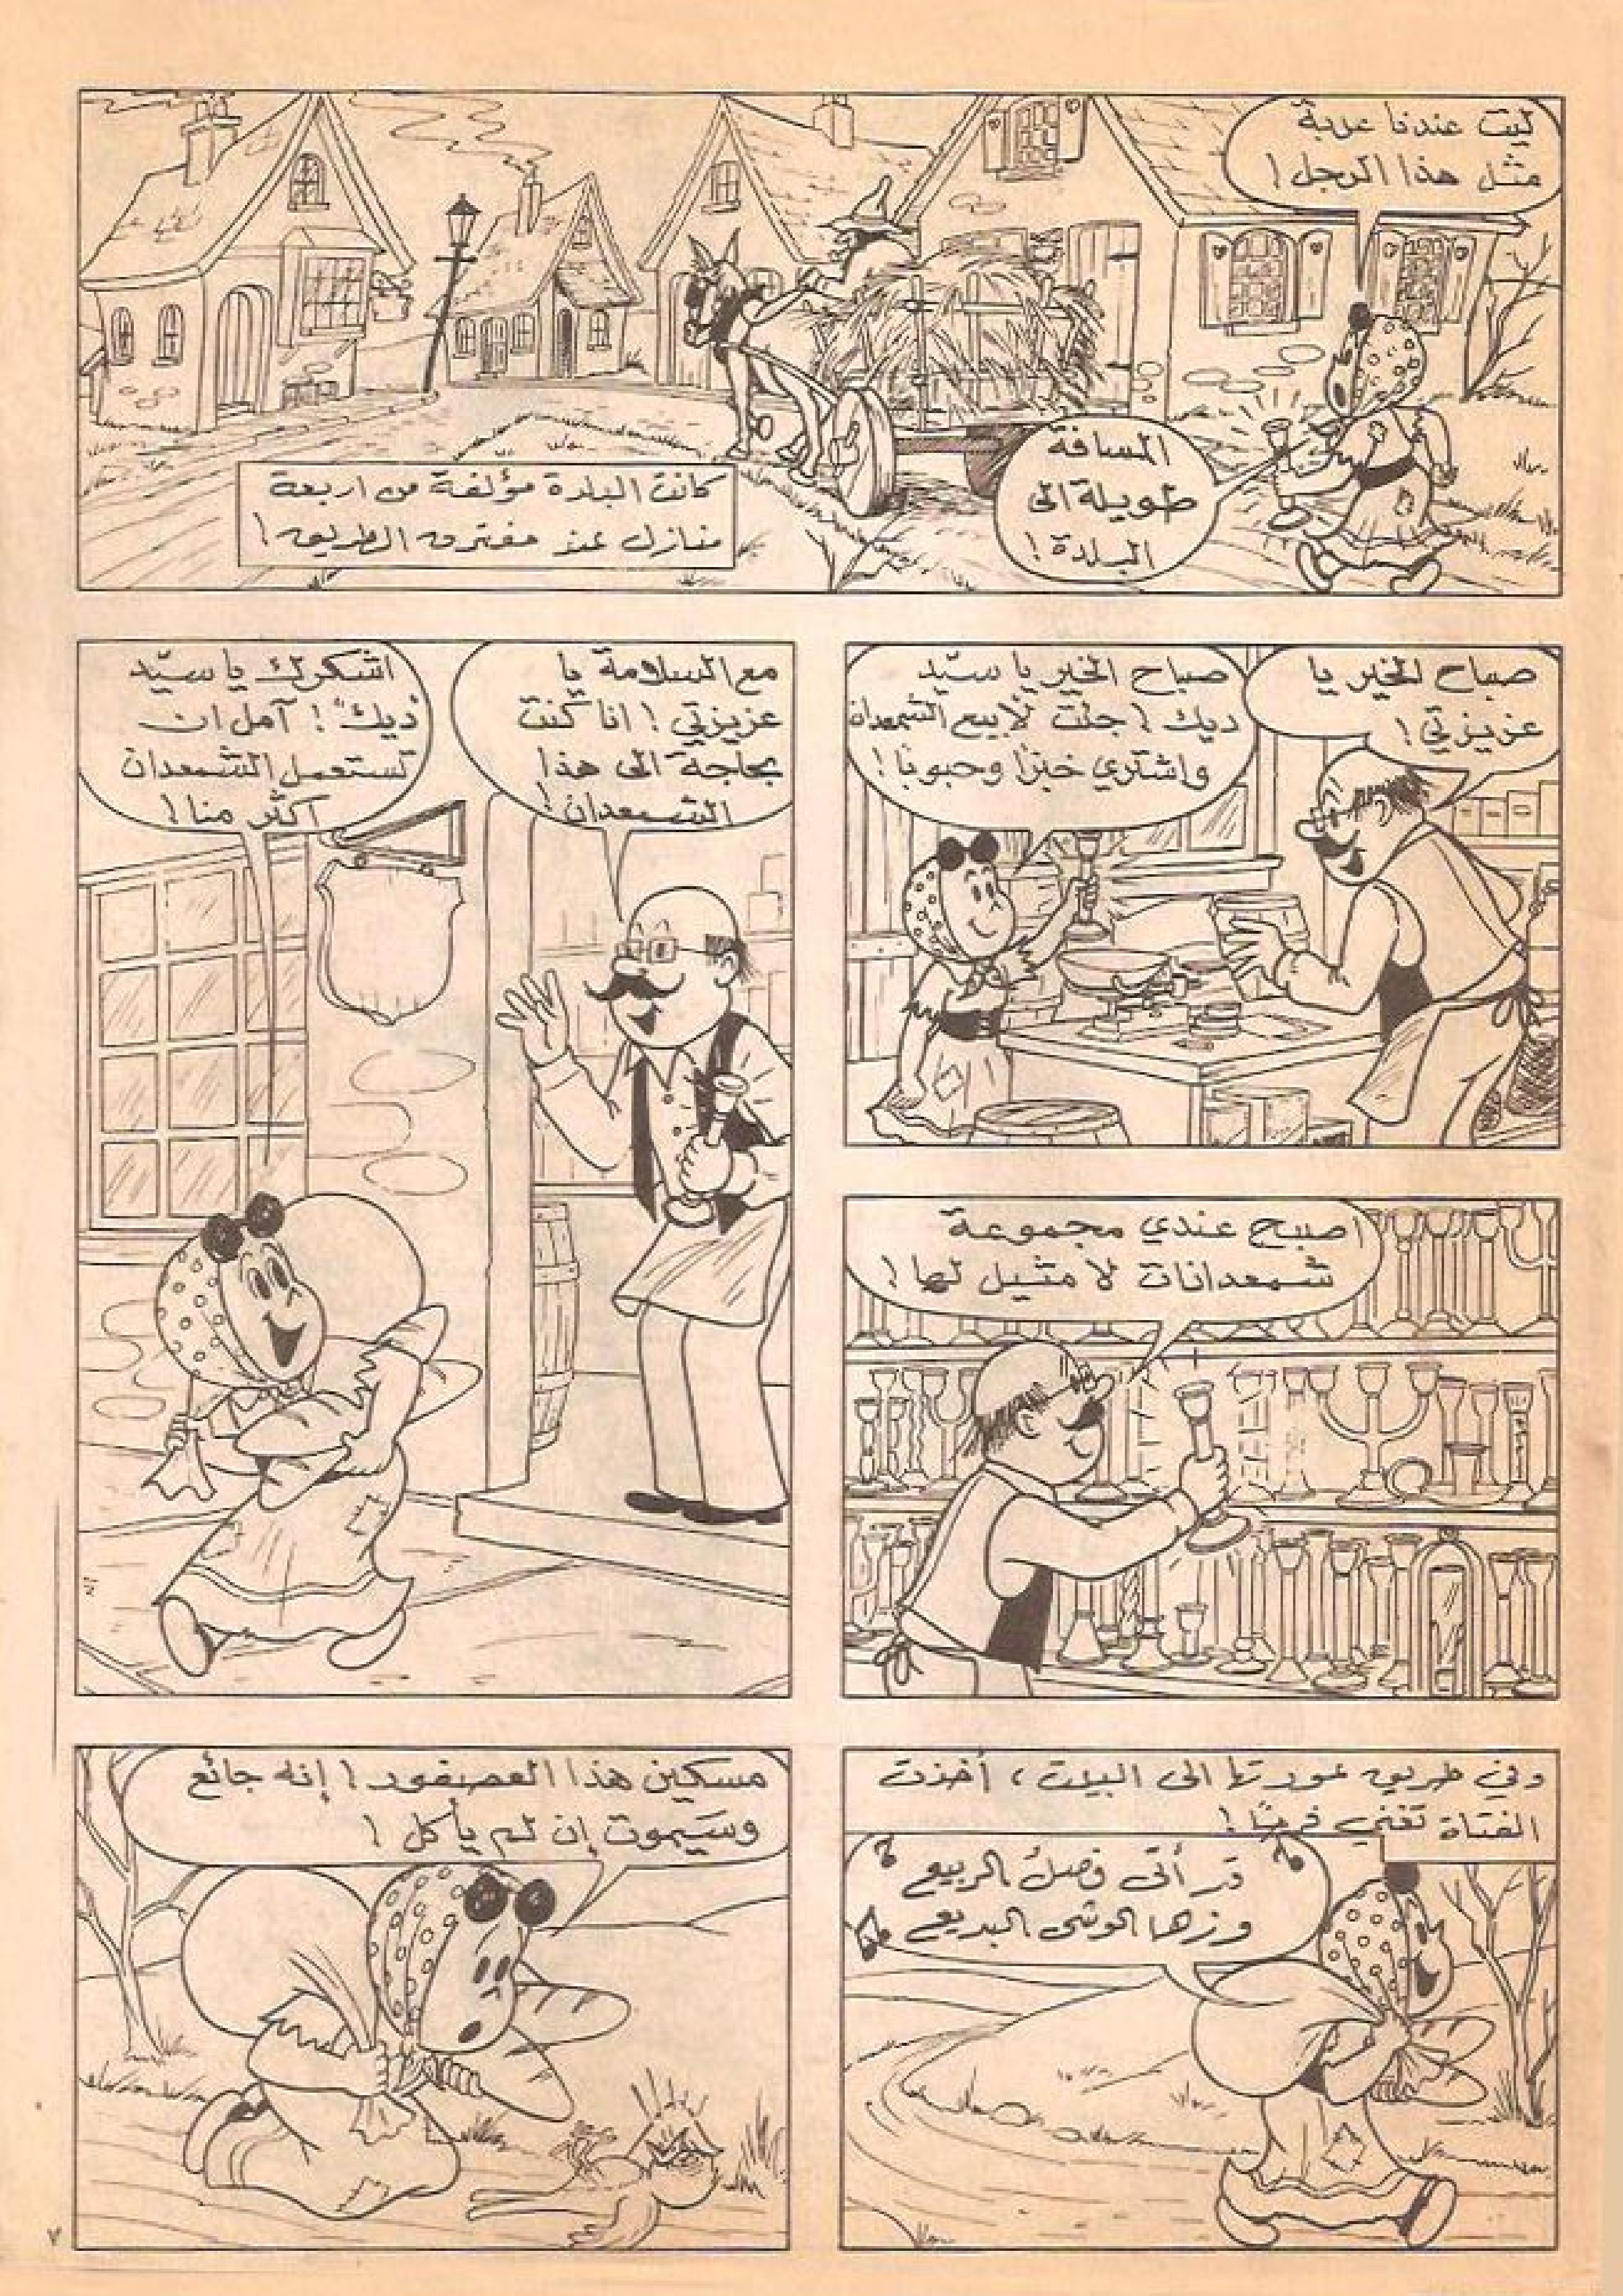 ليت عندنا عربة
مثل هذا الرجل!
المسافة
طويلة الى
البلدة!
كانت البلدة مؤلفة من اربعة
منازل عند مفترق الطريق!
صباح الخير يا
عزيزتي!
صباح الخير يا سيّد
ديك! جئت لأبيع الشمعدان
واشتري خبزًا وحبوبًا!
اصبح عندي مجموعة
شمعدانات لا مثيل لها!
مع السلامة يا
عزيزتي! انا كنت
بحاجة الى هذا
الشمعدان!
اشكرك يا سيّد
ديك! آمل ان
تستعمل الشمعدان
اكثر منا!
وفي طريق عودتها الى البيت، أخذت
الفتاة تغني فرحًا!
قد أتى فصلُ الربيع
وزها الوشى البديع
مسكين هذا العصفور! إنه جائع
وسَيموت إن لم يأكل!
٧